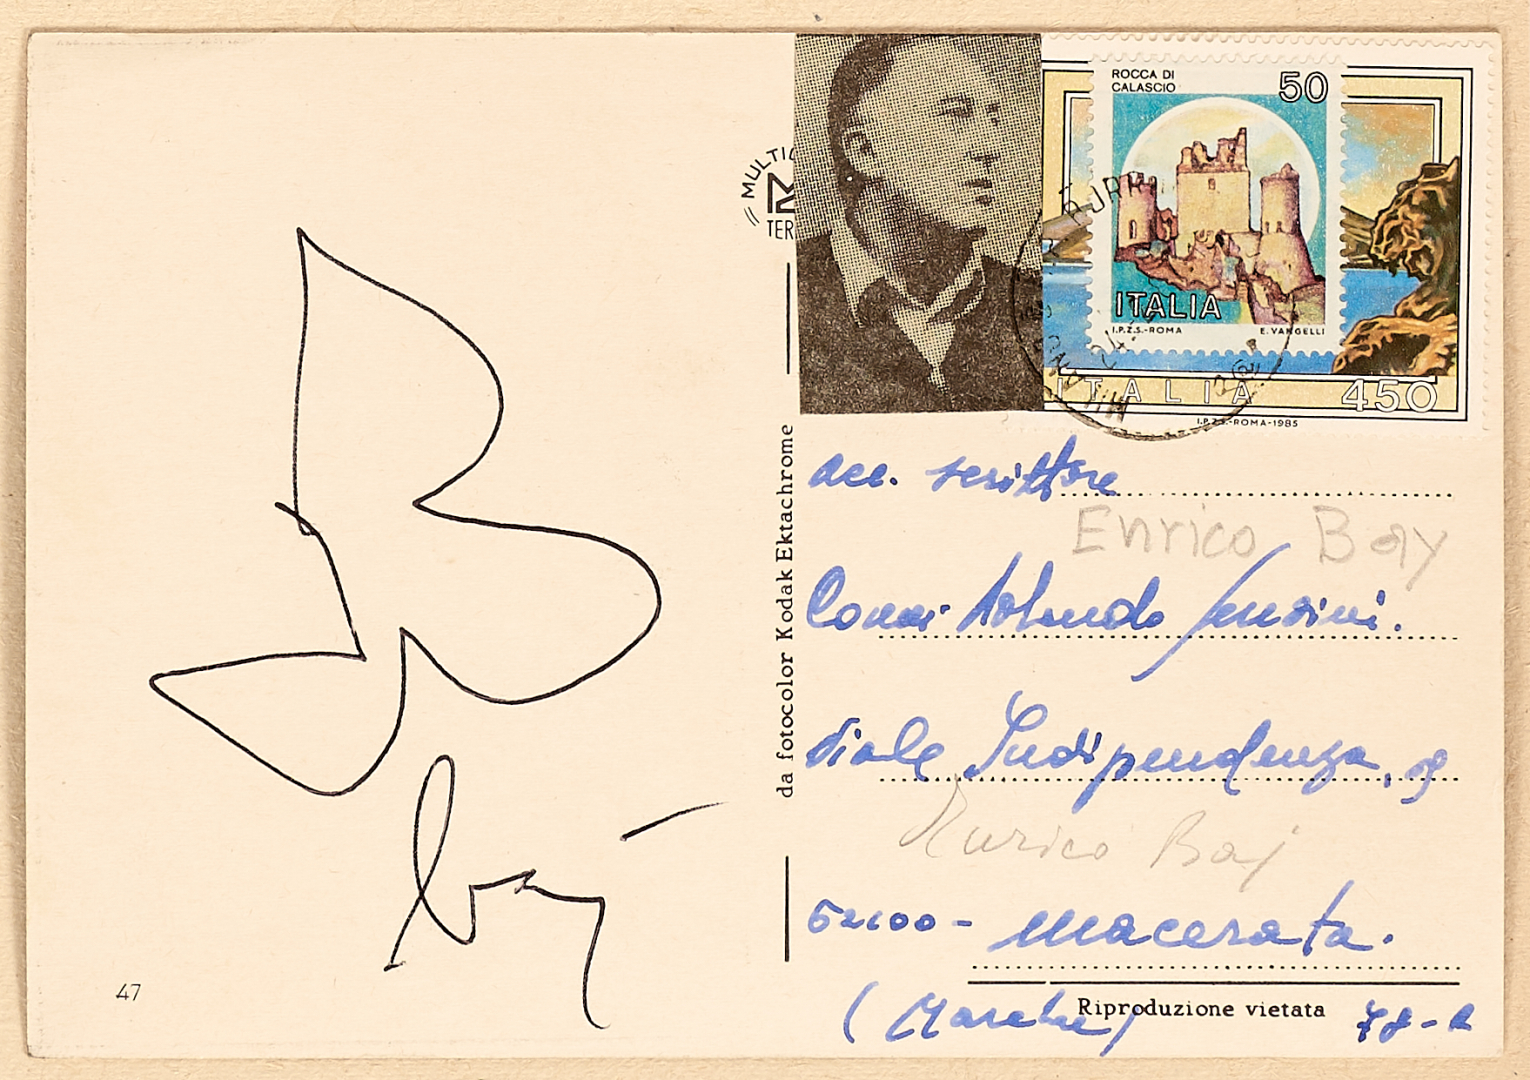 MULTIC
TER
ROCCA DI
CALASCIO
50
ITALIA
I.P.Z.S.-ROMA E. VANGELLI
ITALIA 450
I.P.Z.S.-ROMA-1985
MILANO
da fotocolor Kodak Ektachrome
scrittore
Enrico Bay
viale Indipendenza,
Enrico Baj
62100 - Macerata.
(Marche)
Riproduzione vietata
baj
47